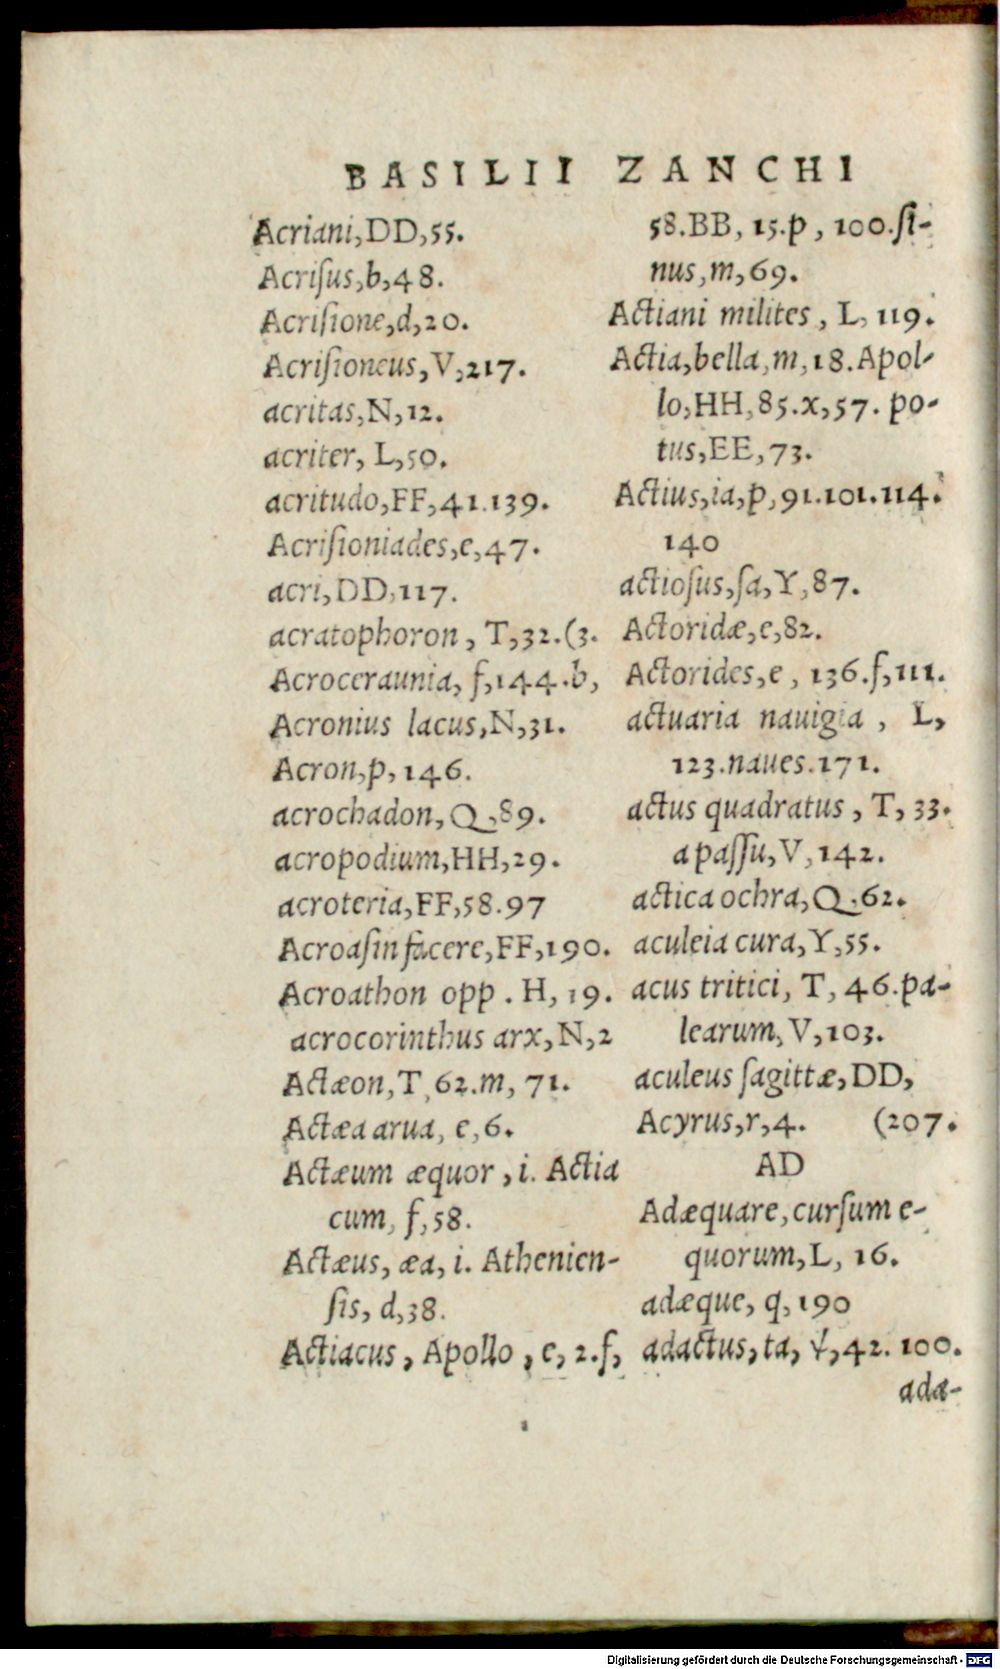 BASILII ZANCHI
Acriani,DD,55.
Acriſus,b,48.
Acriſione,d,20.
Acriſioneus,V,217.
acritas,N,12.
acriter, L,50.
acritudo,FF,41.139.
Acriſioniades,e,47.
acri,DD,117.
acratophoron, T,32.(3.
Acroceraunia, f,144.b,
Acronius lacus,N,31.
Acron,p,146.
acrochadon,Q,89.
acropodium,HH,29.
acroteria,FF,58.97
Acroaſin facere,FF,190.
Acroathon opp. H, 19.
acrocorinthus arx,N,2
Actæon,T,62.m, 71.
Actæa arua, e,6.
Actæum æquor, i. Actia
cum, f,58.
Actæus, æa, i. Athenien-
ſis, d,38.
Actiacus, Apollo, e, 2.f,
58.BB, 15.p, 100.ſi-
nus,m,69.
Actiani milites, L, 119.
Actia,bella,m,18.Apol-
lo,HH,85.x,57. po-
tus,EE,73.
Actius,ia,p,91.101.114.
140
actioſus,ſa,Y,87.
Actoridæ,e,82.
Actorides,e, 136.f,111.
actuaria nauigia, L,
123.naues.171.
actus quadratus, T, 33.
a paſſu,V,142.
actica ochra,Q,62.
aculeia cura,Y,55.
acus tritici, T, 46.pa-
learum,V,103.
aculeus ſagittæ,DD,
Acyrus,r,4. (207.
AD
Adæquare,curſum e-
quorum,L, 16.
adæque, q,190
adactus,ta, ỻ,42. 100.
adæ-
Digitalisierung gefördert durch die Deutsche Forschungsgemeinschaft - DFG